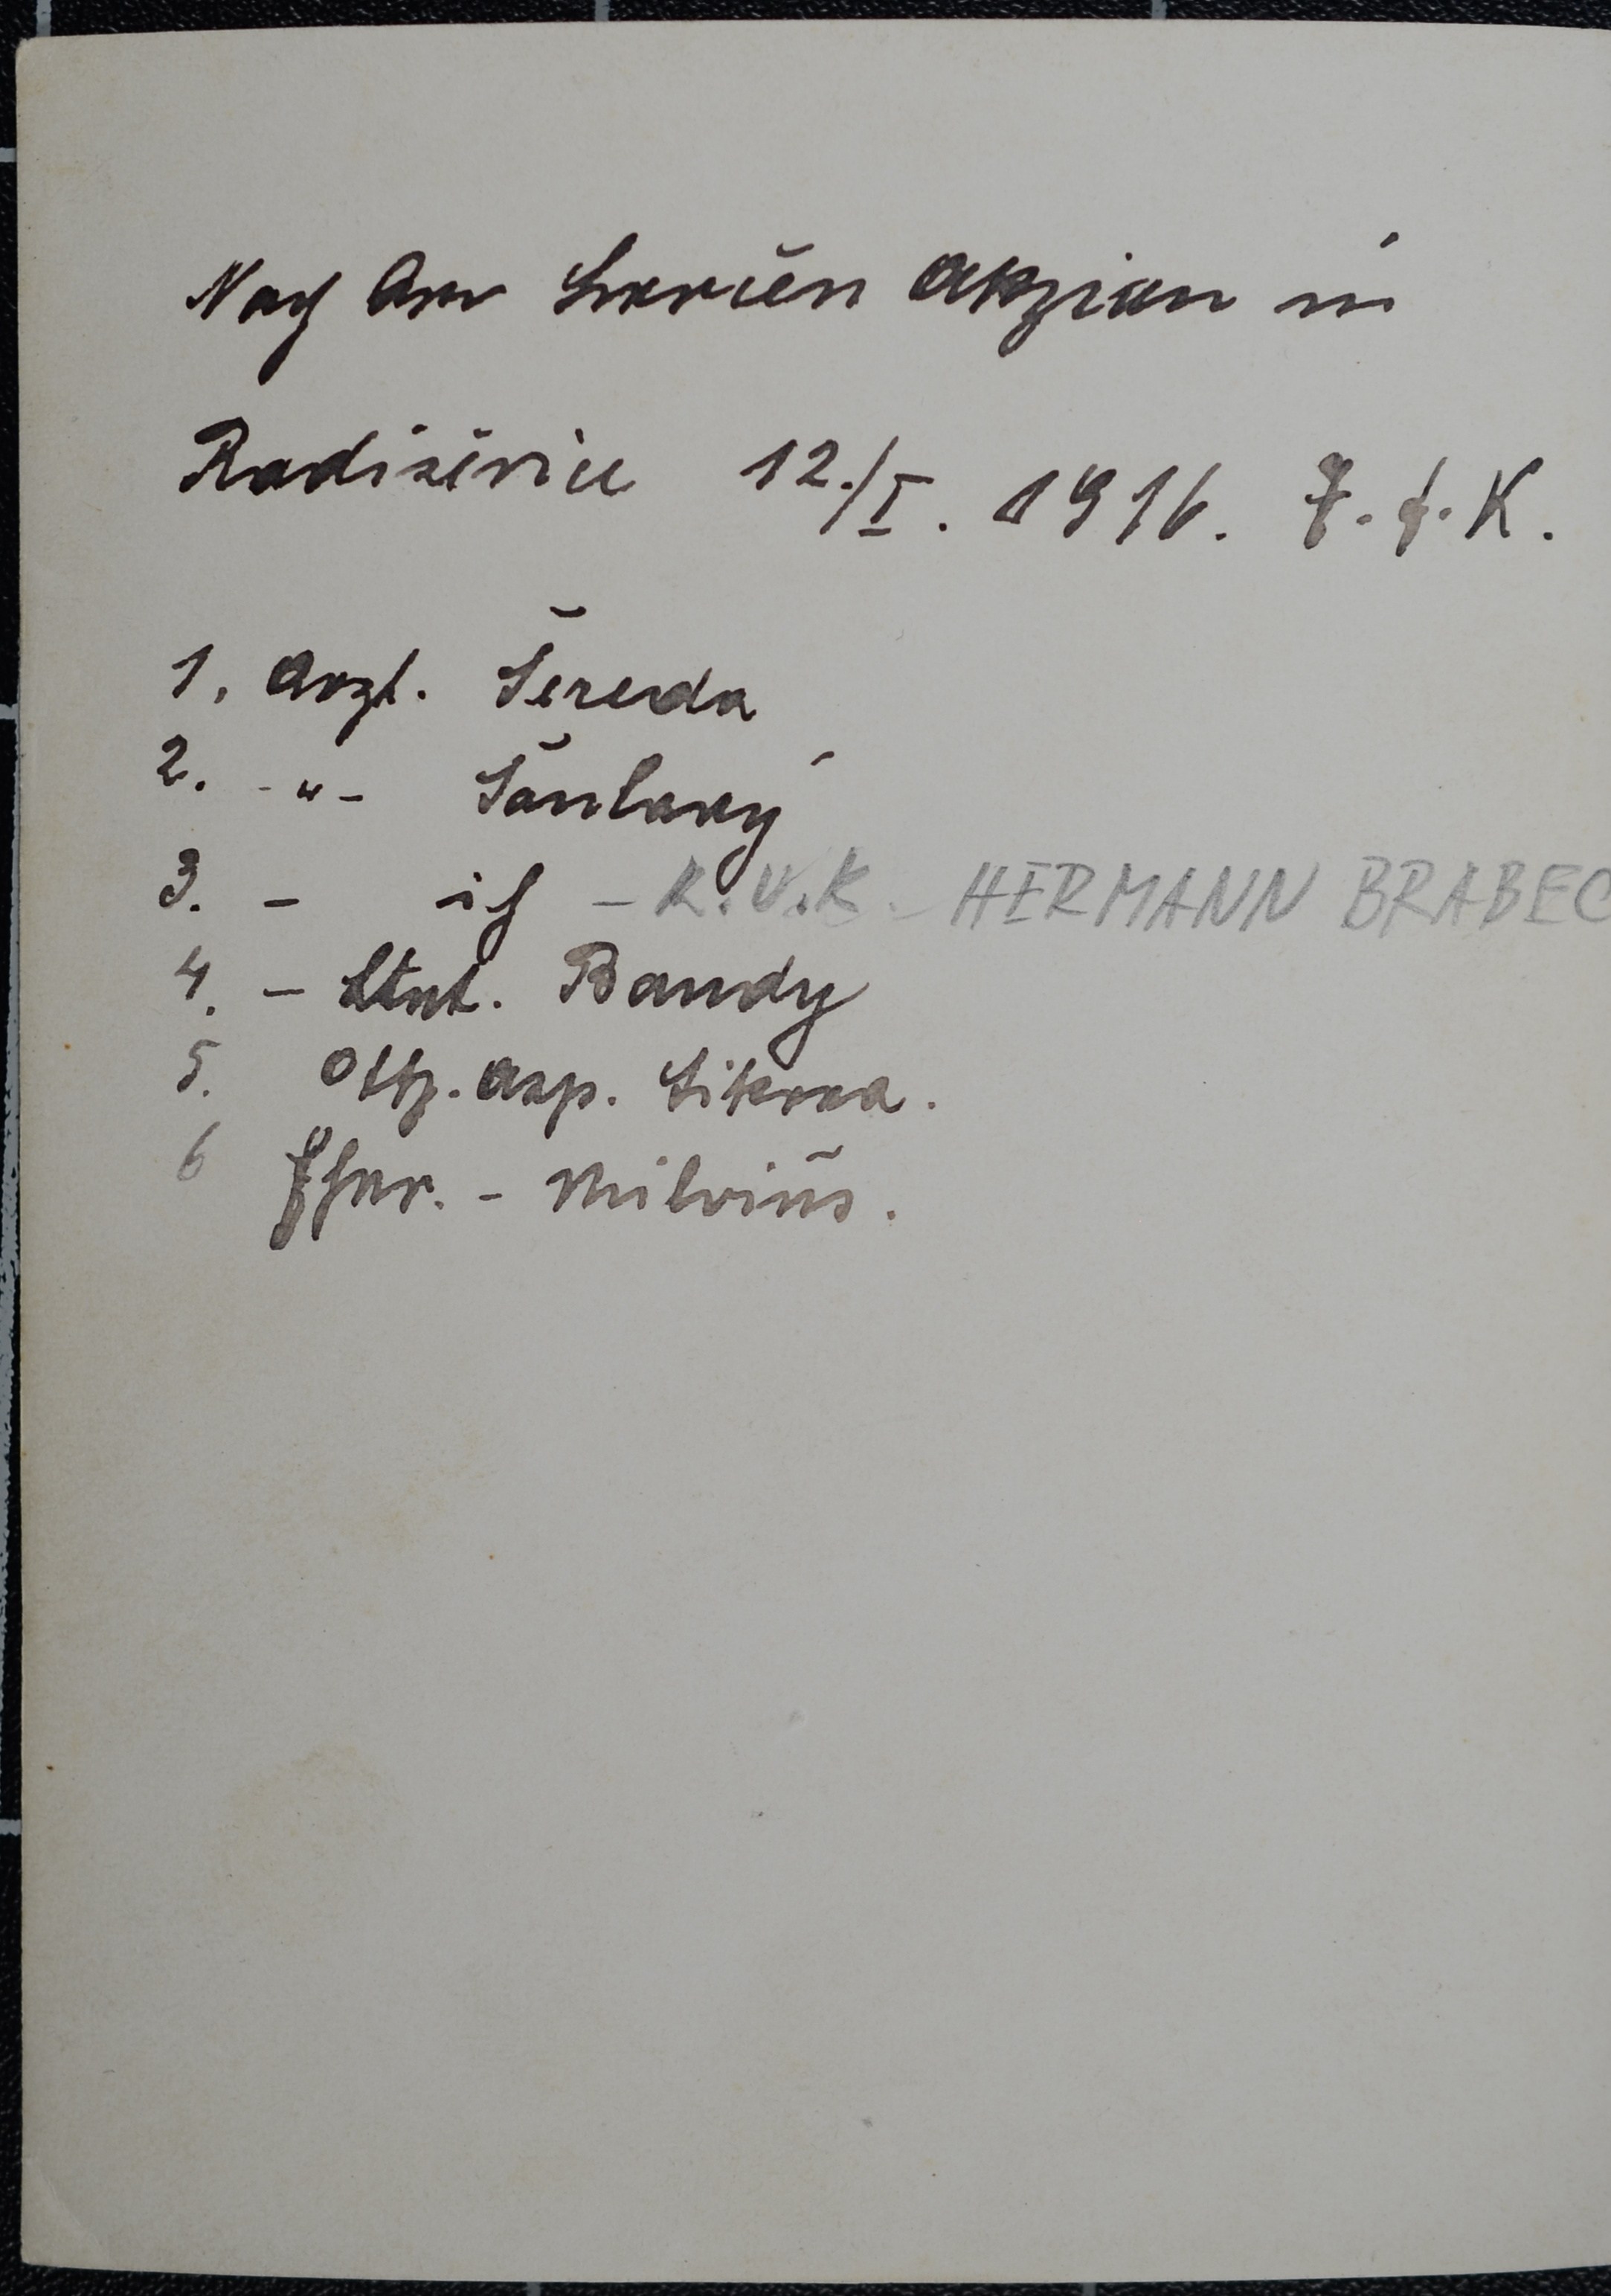 Nach der Serbien Akzion in
Radišiviće 12./I. 1916. F. J. K.
1. Arzt. Šereda
2. -"- Šanlavý
3. - ich - K.U.K. HERMANN BRABEC
4. - Ltnt. Bandy
5. Offz. Asp. Sikora.
6 Fhnr. - Milviüs.